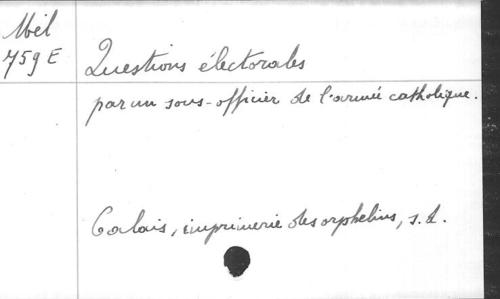 Mél
759 E
Questions électorales
par un sous-officier de l'armée catholique.
Calais, imprimerie des orphelins, s.d.